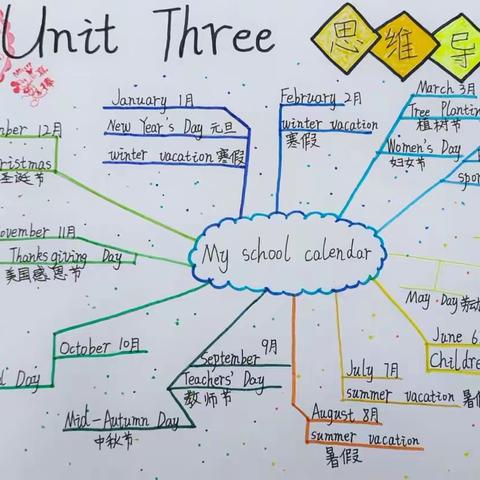 Unit Three
思维导
January 1月
New Year's Day 元旦
winter vacation 寒假
February 2月
winter vacation
寒假
March 3月
Tree Planting
植树节
Women's Day
妇女节
12月
圣诞节
11月
Thanksgiving Day
美国感恩节
My school calendar
May Day 劳动
October 10月
Day
September 9月
Teachers' Day
教师节
Mid-Autumn Day
中秋节
June 6
July 7月
summer vacation 暑
August 8月
summer vacation
暑假